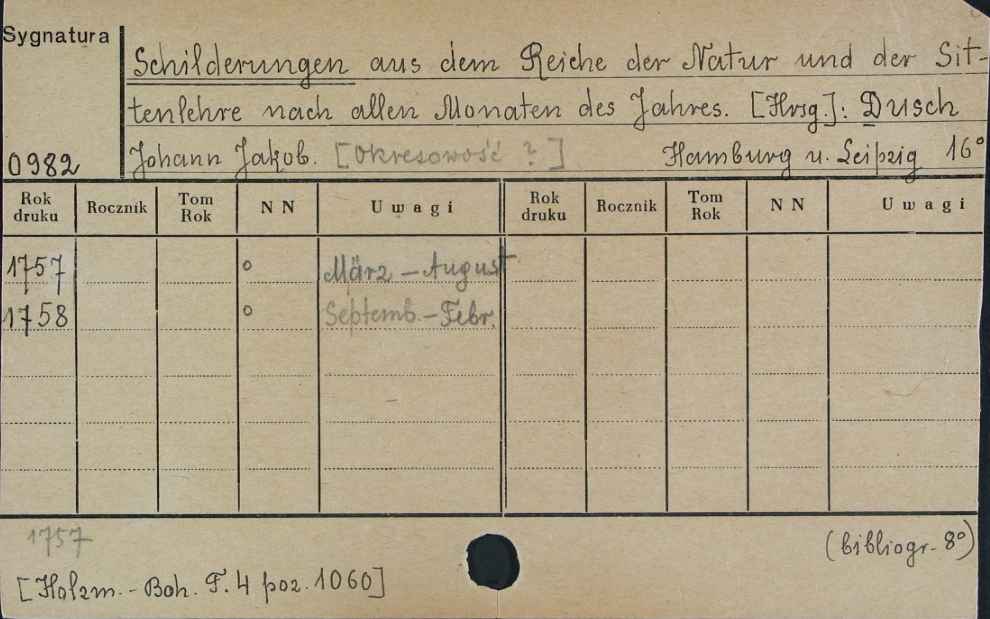 Sygnatura
Schilderungen aus dem Reiche der Natur und der Sit-
tenlehre nach allen Monaten des Jahres. [Hrsg.]: Dusch
0982 Johann Jakob. [Okresowość ?] Hamburg u. Leipzig 16°
Rok druku Rocznik Tom Rok N N Uwagi Rok druku Rocznik Tom Rok N N Uwagi
1757 ° März – August
1758 ° Septemb. – Febr.
1757
(bibliogr. 8°)
[Holzm. - Boh. T. 4 poz. 1060]